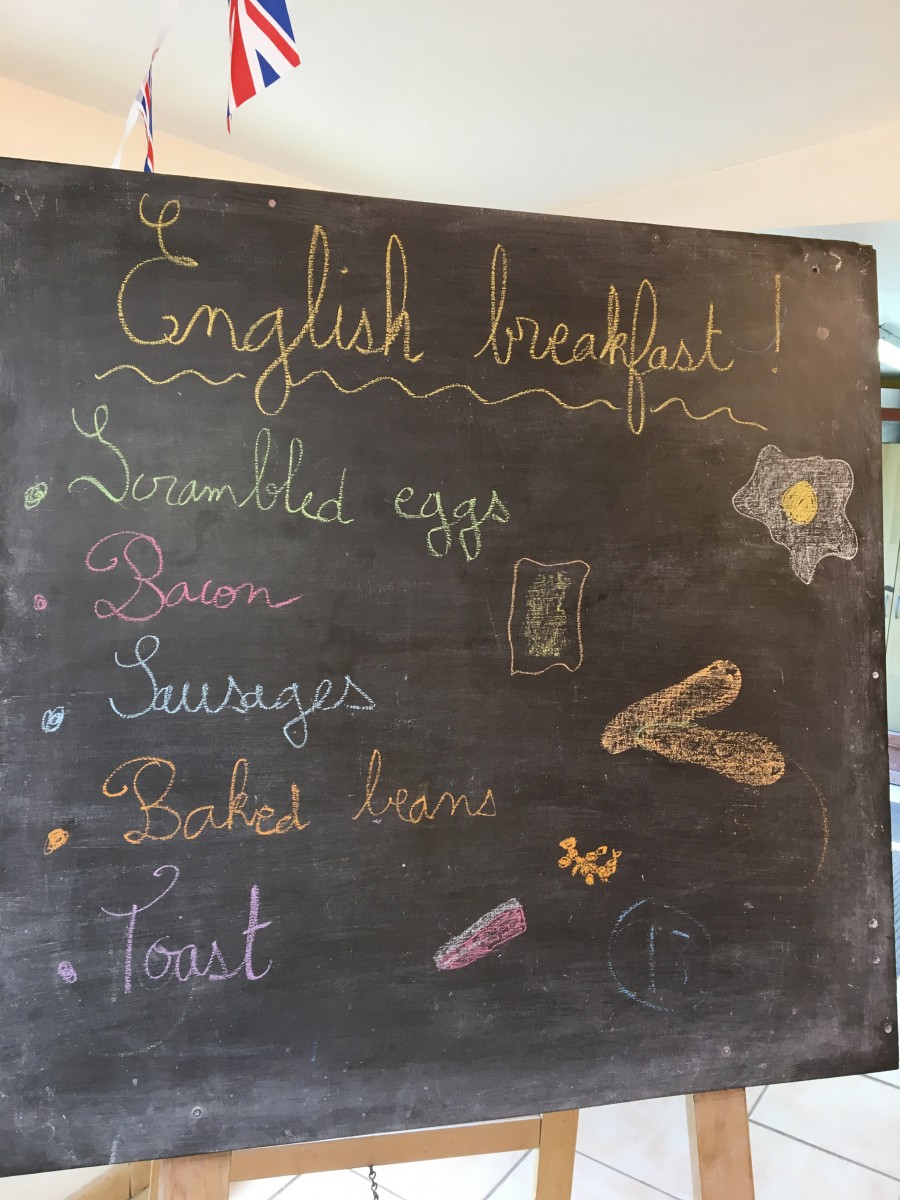 English breakfast !
Scrambled eggs
Bacon
Sausages
Baked beans
Toast